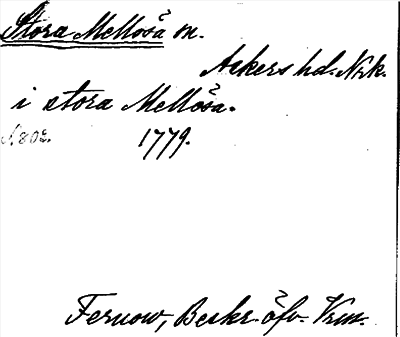 Stora Mellösa sn.
Askers hd. Nrk.
i stora Mellösa.
1779.
Fernow, Beskr. öfv. Vrm.